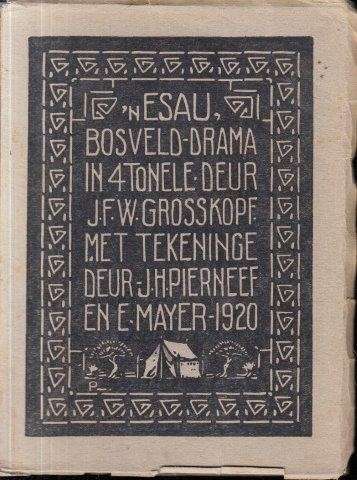 'N ESAU,
BOSVELD-DRAMA
IN 4 TONELE·DEUR
J.F.W. GROSSKOPF.
MET TEKENINGE
DEUR·J.H.PIERNEEF
EN E·MAYER-1920
P